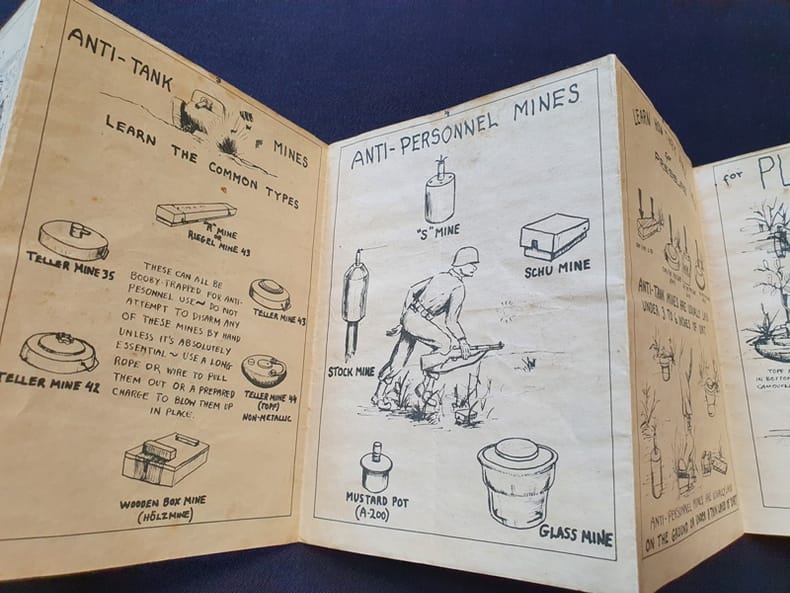 ANTI-TANK
MINES
LEARN THE COMMON TYPES
"R" MINE
OR
RIEGEL MINE 43
TELLER MINE 35
TELLER MINE 43
THESE CAN ALL BE
BOOBY-TRAPPED FOR ANTI-
PESONNEL USE~ DO NOT
ATTEMPT TO DISARM ANY
OF THESE MINES BY HAND
UNLESS IT'S ABSOLUTELY
ESSENTIAL ~ USE A LONG
ROPE OR WIRE TO PULL
THEM OUT OR A PREPARED
CHARGE TO BLOW THEM UP
IN PLACE.
TELLER MINE 42
TELLER MINE 44
(TOPF)
NON-METALLIC
WOODEN BOX MINE
(HÖLZMINE)
ANTI-PERSONNEL MINES
"S" MINE
SCHU MINE
STOCK MINE
MUSTARD POT
(A-200)
GLASS MINE
LEARN HOW
ANTI-TANK MINES ARE USUALLY LAID
UNDER 3 TO 6 INCHES OF DIRT
ANTI-PERSONNEL MINES ARE USUALLY LAID
ON THE GROUND OR UNDER A THIN LAYER OF DIRT
for PL
IN BOTTOM